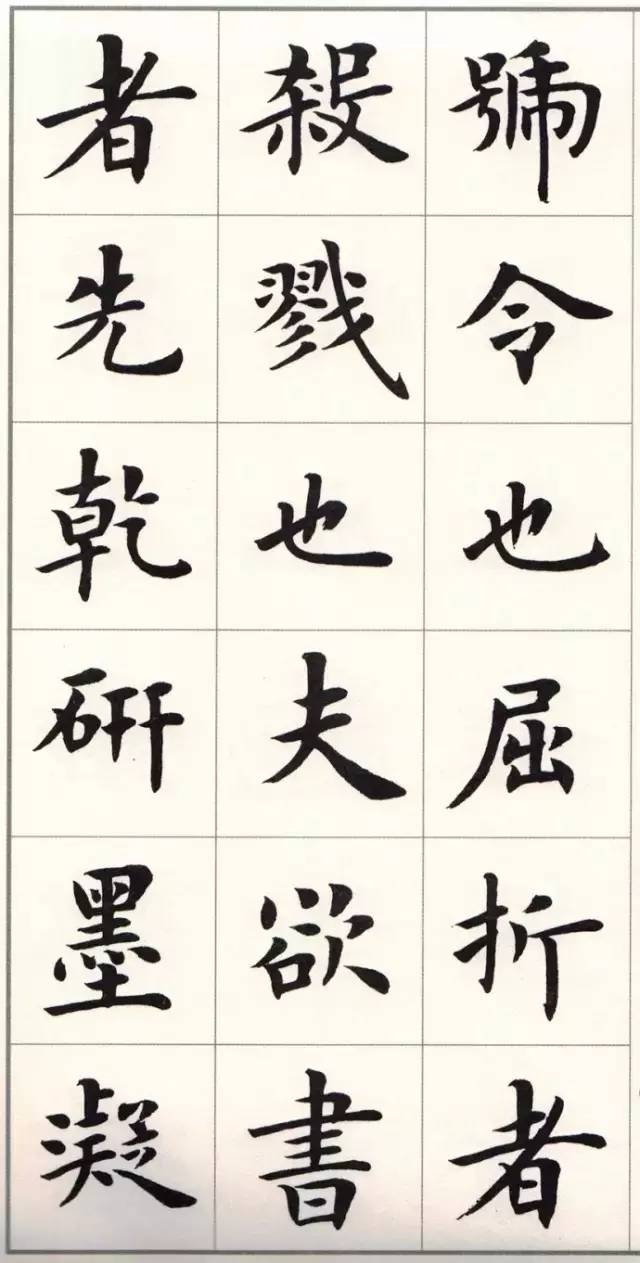 號令也屈折者
殺戮也夫欲書
者先乾硏墨凝